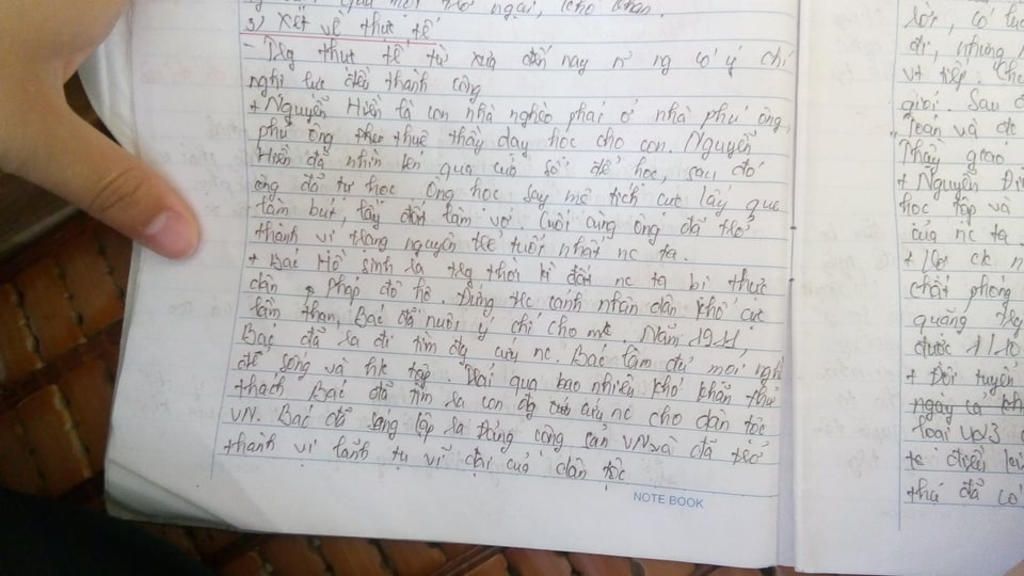 trở ngại, khó khăn.
3) Xét về thực tế
- Trg thực tế từ xưa đến nay n ng có ý chí
nghị lực đều thành công
+ Nguyễn Hiền là con nhà nghèo phải ở nhà phú ông,
phú ông thuê thầy dạy học cho con. Nguyễn
Hiền đã nhìn lén qua cửa sổ để học, sau đó
ông đã tự học. Ông học say mê tích cực lấy que
làm bút, lấy đất làm vở. Cuối cùng ông đã trở
thành vị trạng nguyên trẻ tuổi nhất nc ta.
+ Bác Hồ sinh ra trg thời kì đất nc ta bị thực
dân Pháp đô hộ. Đứng trc cảnh nhân dân khổ cực
lầm than, Bác đã nuôi ý chí cho mk. Năm 1911,
Bác đã ra đi tìm đg cứu nc. Bác làm đủ mọi nghề
để sống và học tập. Trải qua bao nhiêu khó khăn thử
thách Bác đã tìm ra con đg cứu nc cho dân tộc
VN. Bác đã sáng lập ra Đảng cộng sản VN và đã trở
thành vị lãnh tụ vĩ đại của dân tộc
NOTE BOOK
đi, nhưng
vt tiếp.
giỏi. Sau
Toán và
Thầy giáo
+ Nguyễn
học tập và
của nc ta.
chất phóng
quãng
được 1/10
+ Đội tuyển
ngày cả
loại